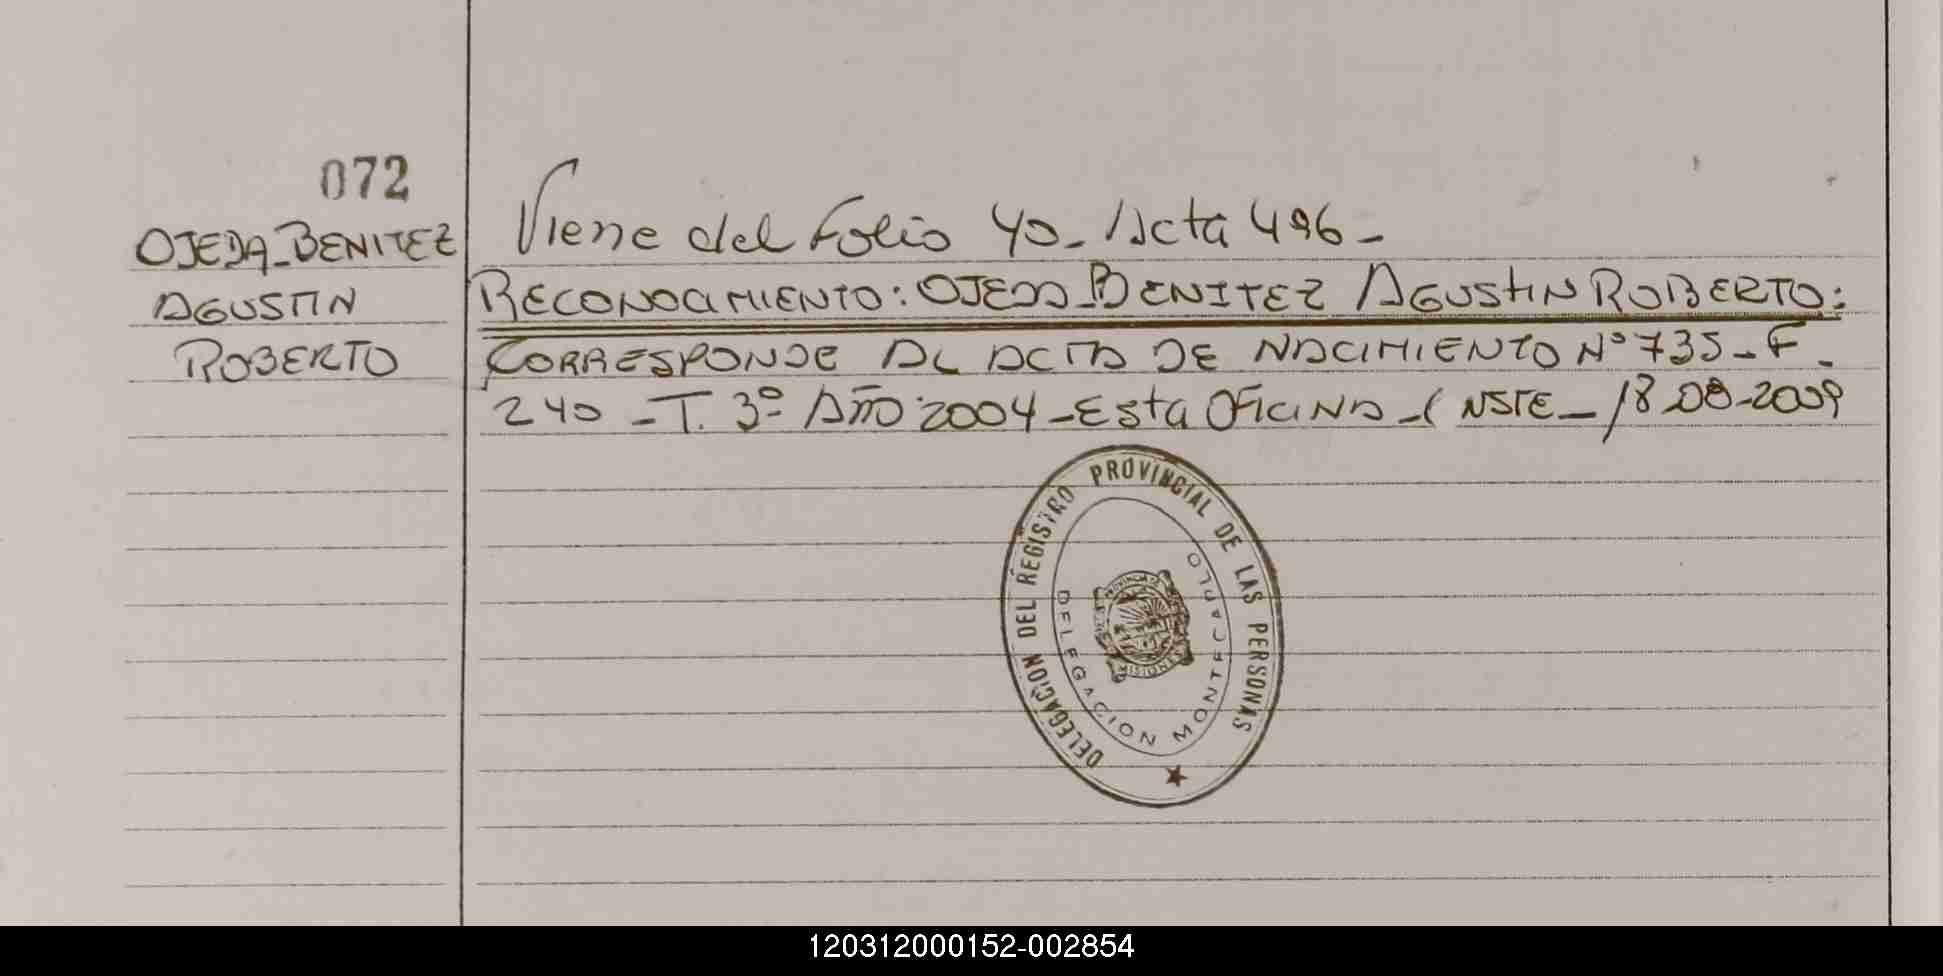 072
OJEDA_BENITEZ
AGUSTIN
ROBERTO
Viene del Folio 40_ Acta 496_
RECONOCIMIENTO: OJEDA_BENITEZ AGUSTIN ROBERTO:
CORRESPONDE AL ACTA DE NACIMIENTO Nº 735_F_
240_T. 3º AÑO:2004_Esta OFICINA_CONSTE_18_08_2009
DELEGACIÓN DEL REGISTRO PROVINCIAL DE LAS PERSONAS
DELEGACION MONTECARLO
PROVINCIA DE
MISIONES
120312000152-002854